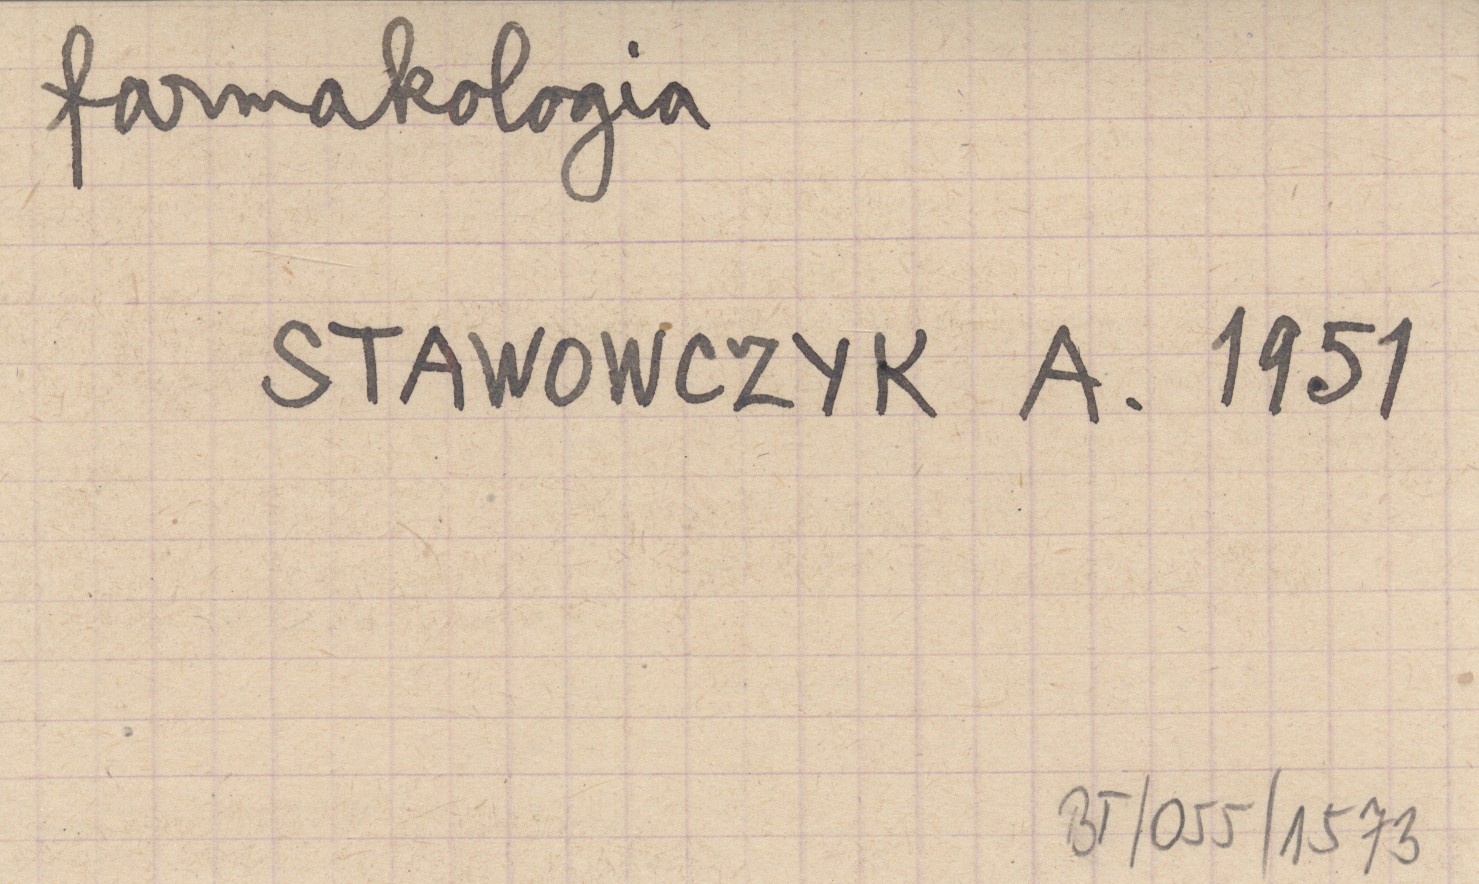 farmakologia
STAWOWCZYK A. 1951
BT/055/1573